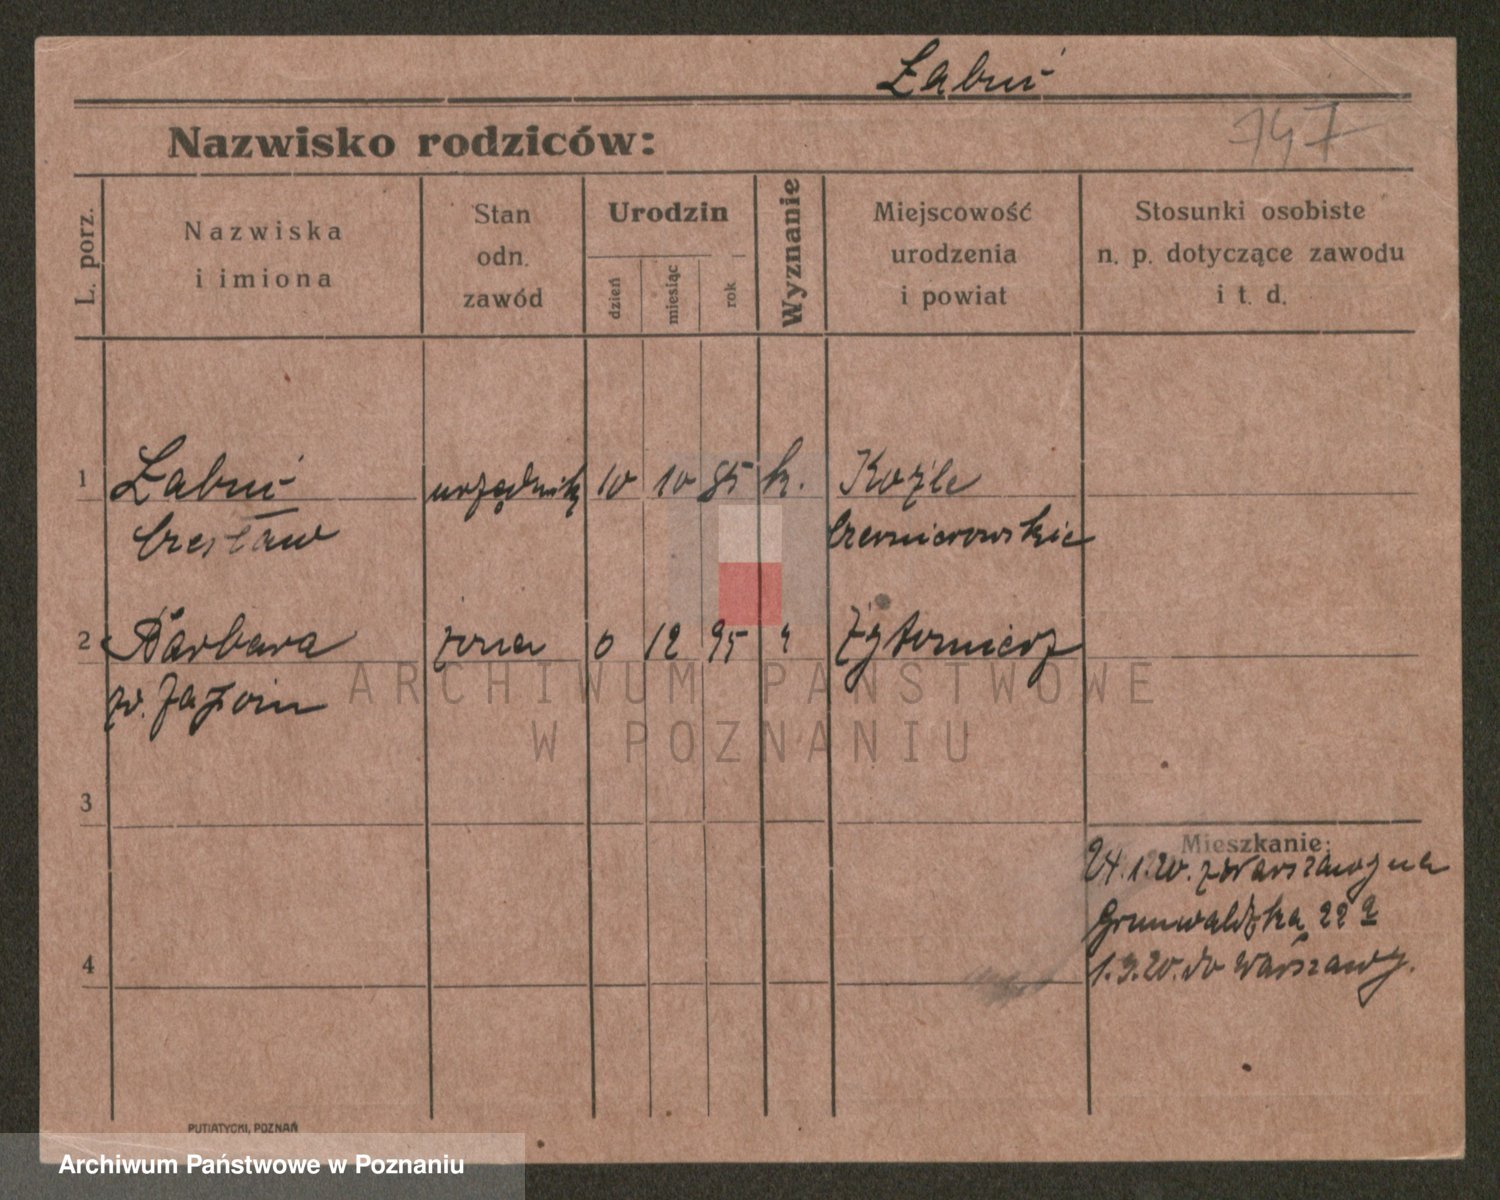 Łabuć
Nazwisko rodziców:
747
L. porz.
Nazwiska
i imiona
Stan
odn.
zawód
Urodzin
dzień
miesiąc
rok
Wyznanie
Miejscowość
urodzenia
i powiat
Stosunki osobiste
n. p. dotyczące zawodu
i t. d.
1
Łabuć
urzędnik
10
10
85
k.
Koźle
Czesław
2
Barbara
żona
6
12
95
"
z.
3
Mieszkanie:
24.1.20. z Warszawy na
Grunwaldzka 22 a
4
1.9.20. do Warszawy.
ARCHIWUM PAŃSTWOWE
W POZNANIU
PUTIATYCKI, POZNAŃ
Archiwum Państwowe w Poznaniu